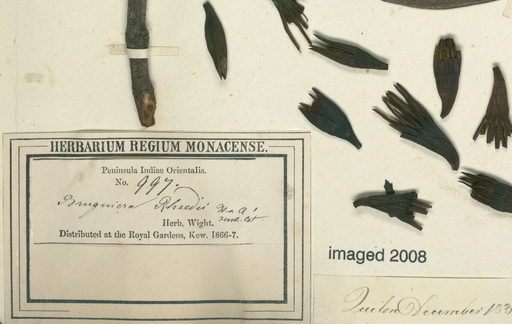 HERBARIUM REGIUM MONACENSE.
Peninsula Indiae Orientalis.
No. 997.
Bruguiera Rheedii W & A!
Herb. Wight.
Distributed at the Royal Gardens, Kew. 1866-7.
imaged 2008
Quilon December 183